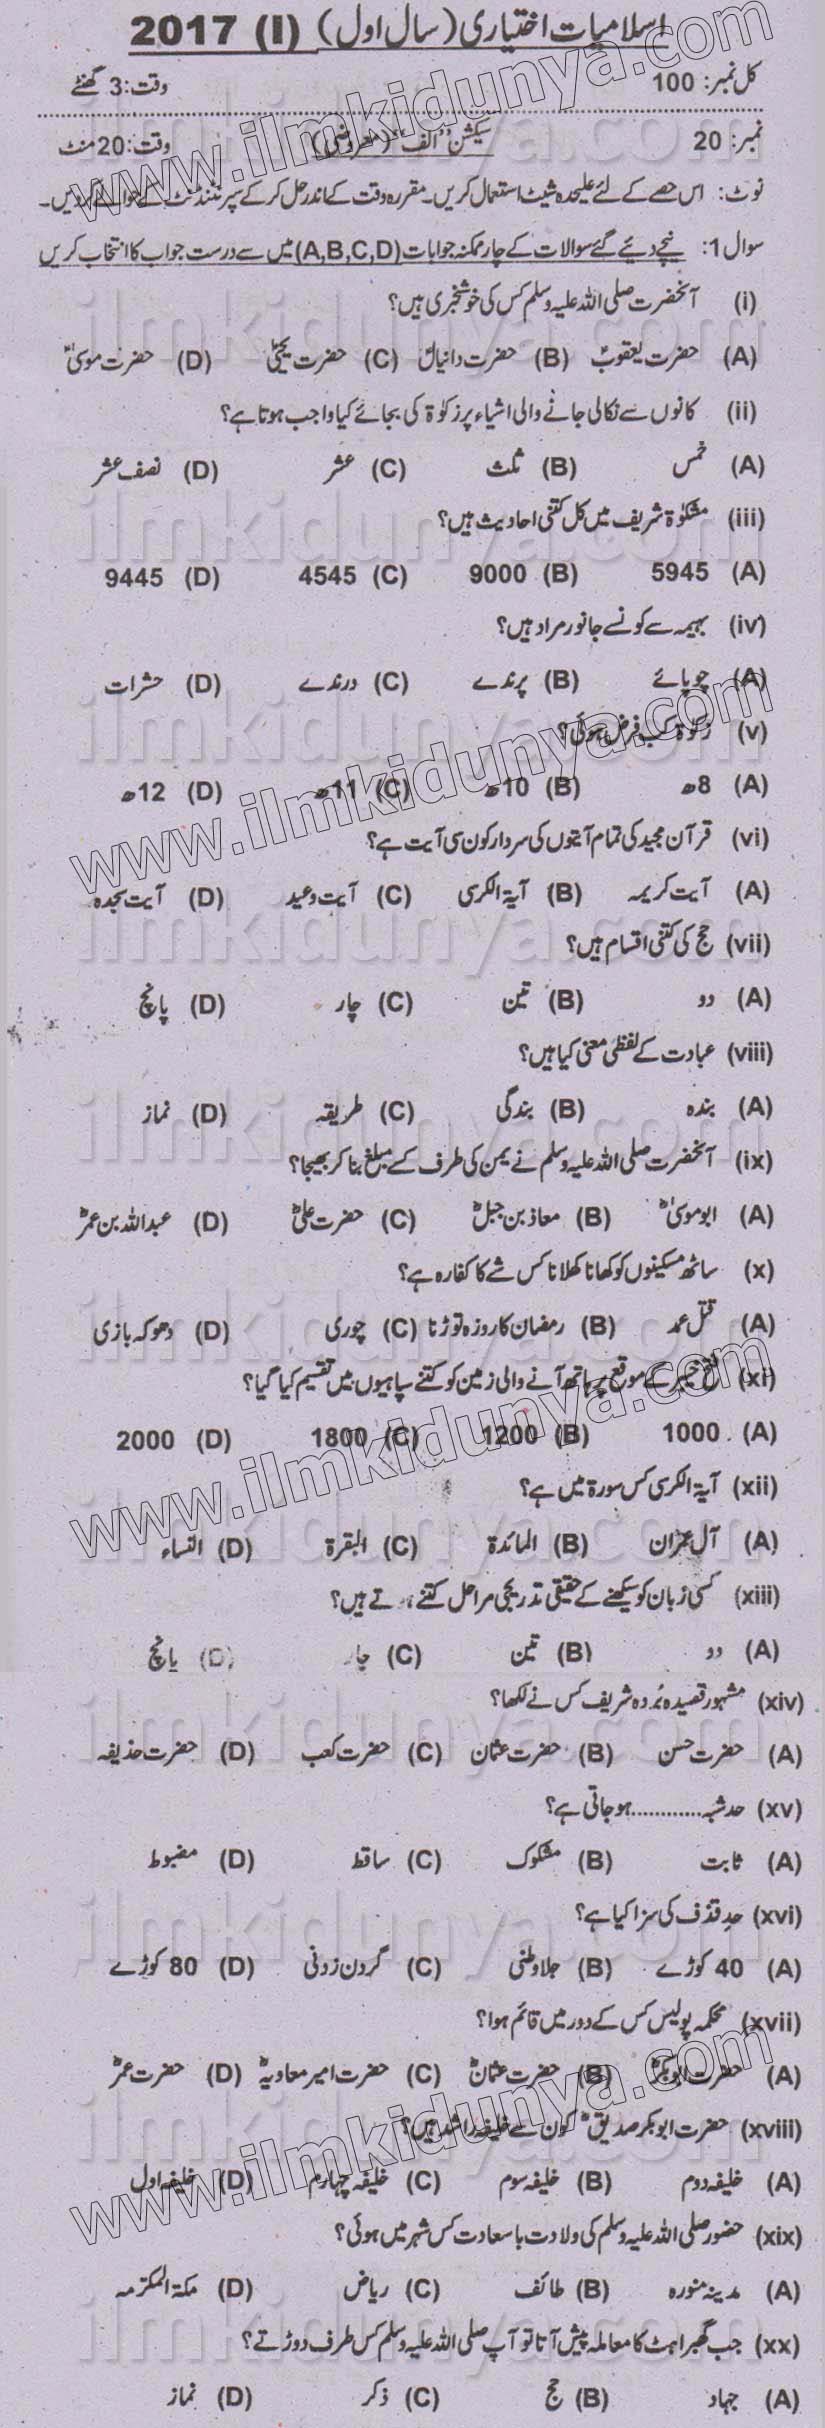 اسلامیات اختیاری (سال اول) 2017 (I)
کل نمبر: 100 وقت: 3 گھنٹے
نمبر: 20 سیکشن "الف" (معروضی) وقت: 20 منٹ
نوٹ: اس حصے کے لئے علیحدہ شیٹ استعمال کریں۔ مقررہ وقت کے اندر حل کر کے سپرنٹنڈنٹ کے حوالے کر دیں۔
سوال 1: نیچے دیئے گئے سوالات کے چار ممکنہ جوابات (A,B,C,D) میں سے درست جواب کا انتخاب کریں
(i) آنحضرت صلی اللہ علیہ وسلم کس کی خوشخبری ہیں؟
(A) حضرت یعقوبؑ (B) حضرت دانیالؑ (C) حضرت یحییٰؑ (D) حضرت موسیٰؑ
(ii) کانوں سے نکالی جانے والی اشیاء پر زکوٰۃ کی بجائے کیا واجب ہوتا ہے؟
(A) خمس (B) ثلث (C) عشر (D) نصف عشر
(iii) مشکوٰۃ شریف میں کل کتنی احادیث ہیں؟
(A) 5945 (B) 9000 (C) 4545 (D) 9445
(iv) بہیمہ سے کونسے جانور مراد ہیں؟
(A) چوپائے (B) پرندے (C) درندے (D) حشرات
(v) زکوٰۃ کب فرض ہوئی؟
(A) 8ھ (B) 10ھ (C) 11ھ (D) 12ھ
(vi) قرآن مجید کی تمام آیتوں کی سردار کون سی آیت ہے؟
(A) آیت کریمہ (B) آیۃ الکرسی (C) آیت وعید (D) آیت سجدہ
(vii) حج کی کتنی اقسام ہیں؟
(A) دو (B) تین (C) چار (D) پانچ
(viii) عبادت کے لفظی معنی کیا ہیں؟
(A) بندہ (B) بندگی (C) طریقہ (D) نماز
(ix) آنحضرت صلی اللہ علیہ وسلم نے یمن کی طرف کسے مبلغ بنا کر بھیجا؟
(A) ابو موسیٰؓ (B) معاذ بن جبلؓ (C) حضرت علیؓ (D) عبداللہ بن عمرؓ
(x) ساٹھ مسکینوں کو کھانا کھلانا کس شے کا کفارہ ہے؟
(A) قتل عمد (B) رمضان کا روزہ توڑنا (C) چوری (D) دھوکہ بازی
(xi) فتح خیبر کے موقع پر ہاتھ آنے والی زمین کو کتنے سپاہیوں میں تقسیم کیا گیا؟
(A) 1000 (B) 1200 (C) 1800 (D) 2000
(xii) آیۃ الکرسی کس سورۃ میں ہے؟
(A) آل عمران (B) المائدۃ (C) البقرۃ (D) النساء
(xiii) کسی زبان کو سیکھنے کے حقیقی تدریجی مراحل کتنے ہوتے ہیں؟
(A) دو (B) تین (C) چار (D) پانچ
(xiv) مشہور قصیدہ بُردہ شریف کس نے لکھا؟
(A) حضرت حسن (B) حضرت عثمان (C) حضرت کعب (D) حضرت حذیفہ
(xv) حد شبہ ............ ہو جاتی ہے؟
(A) ثابت (B) مشکوک (C) ساقط (D) مضبوط
(xvi) حدِ قذف کی سزا کیا ہے؟
(A) 40 کوڑے (B) جلاوطنی (C) گردن زدنی (D) 80 کوڑے
(xvii) محکمہ پولیس کس کے دور میں قائم ہوا؟
(A) حضرت ابوبکرؓ (B) حضرت عثمانؓ (C) حضرت امیر معاویہؓ (D) حضرت عمرؓ
(xviii) حضرت ابوبکر صدیقؓ کون سے خلیفہ راشد ہیں؟
(A) خلیفہ دوم (B) خلیفہ سوم (C) خلیفہ چہارم (D) خلیفہ اول
(xix) حضور صلی اللہ علیہ وسلم کی ولادت باسعادت کس شہر میں ہوئی؟
(A) مدینہ منورہ (B) طائف (C) ریاض (D) مکۃ المکرمہ
(xx) جب گھبراہٹ کا معاملہ پیش آتا تو آپ صلی اللہ علیہ وسلم کس طرف دوڑتے؟
(A) جہاد (B) حج (C) ذکر (D) نماز
www.ilmkidunya.com
www.ilmkidunya.com
www.ilmkidunya.com
www.ilmkidunya.com